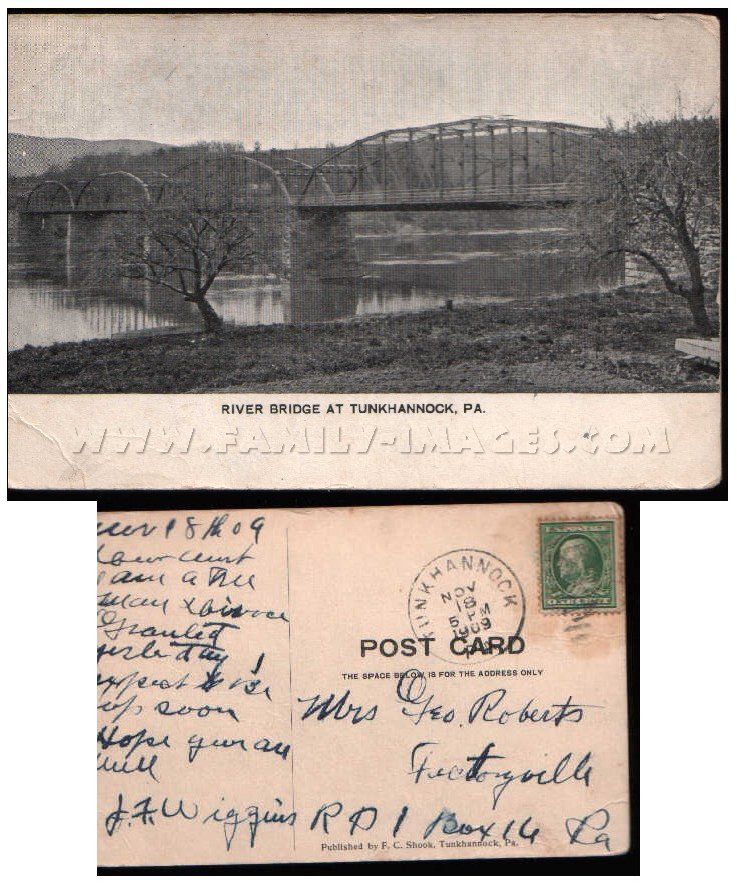 RIVER BRIDGE AT TUNKHANNOCK, PA.
WWW.FAMILY-IMAGES.COM
Nov 18th 09
Dear aunt
I am a free
Man Divorce
Granted
yesterday I
expect to be
up soon
Hope you all
well
J. F. Wiggins
TUNKHANNOCK
NOV
18
5 PM
1909
PA.
POST CARD
THE SPACE BELOW IS FOR THE ADDRESS ONLY
Mrs Geo. Roberts
Factoryville
R D 1 Box 16 Pa
Published by F. C. Shook, Tunkhannock, Pa.